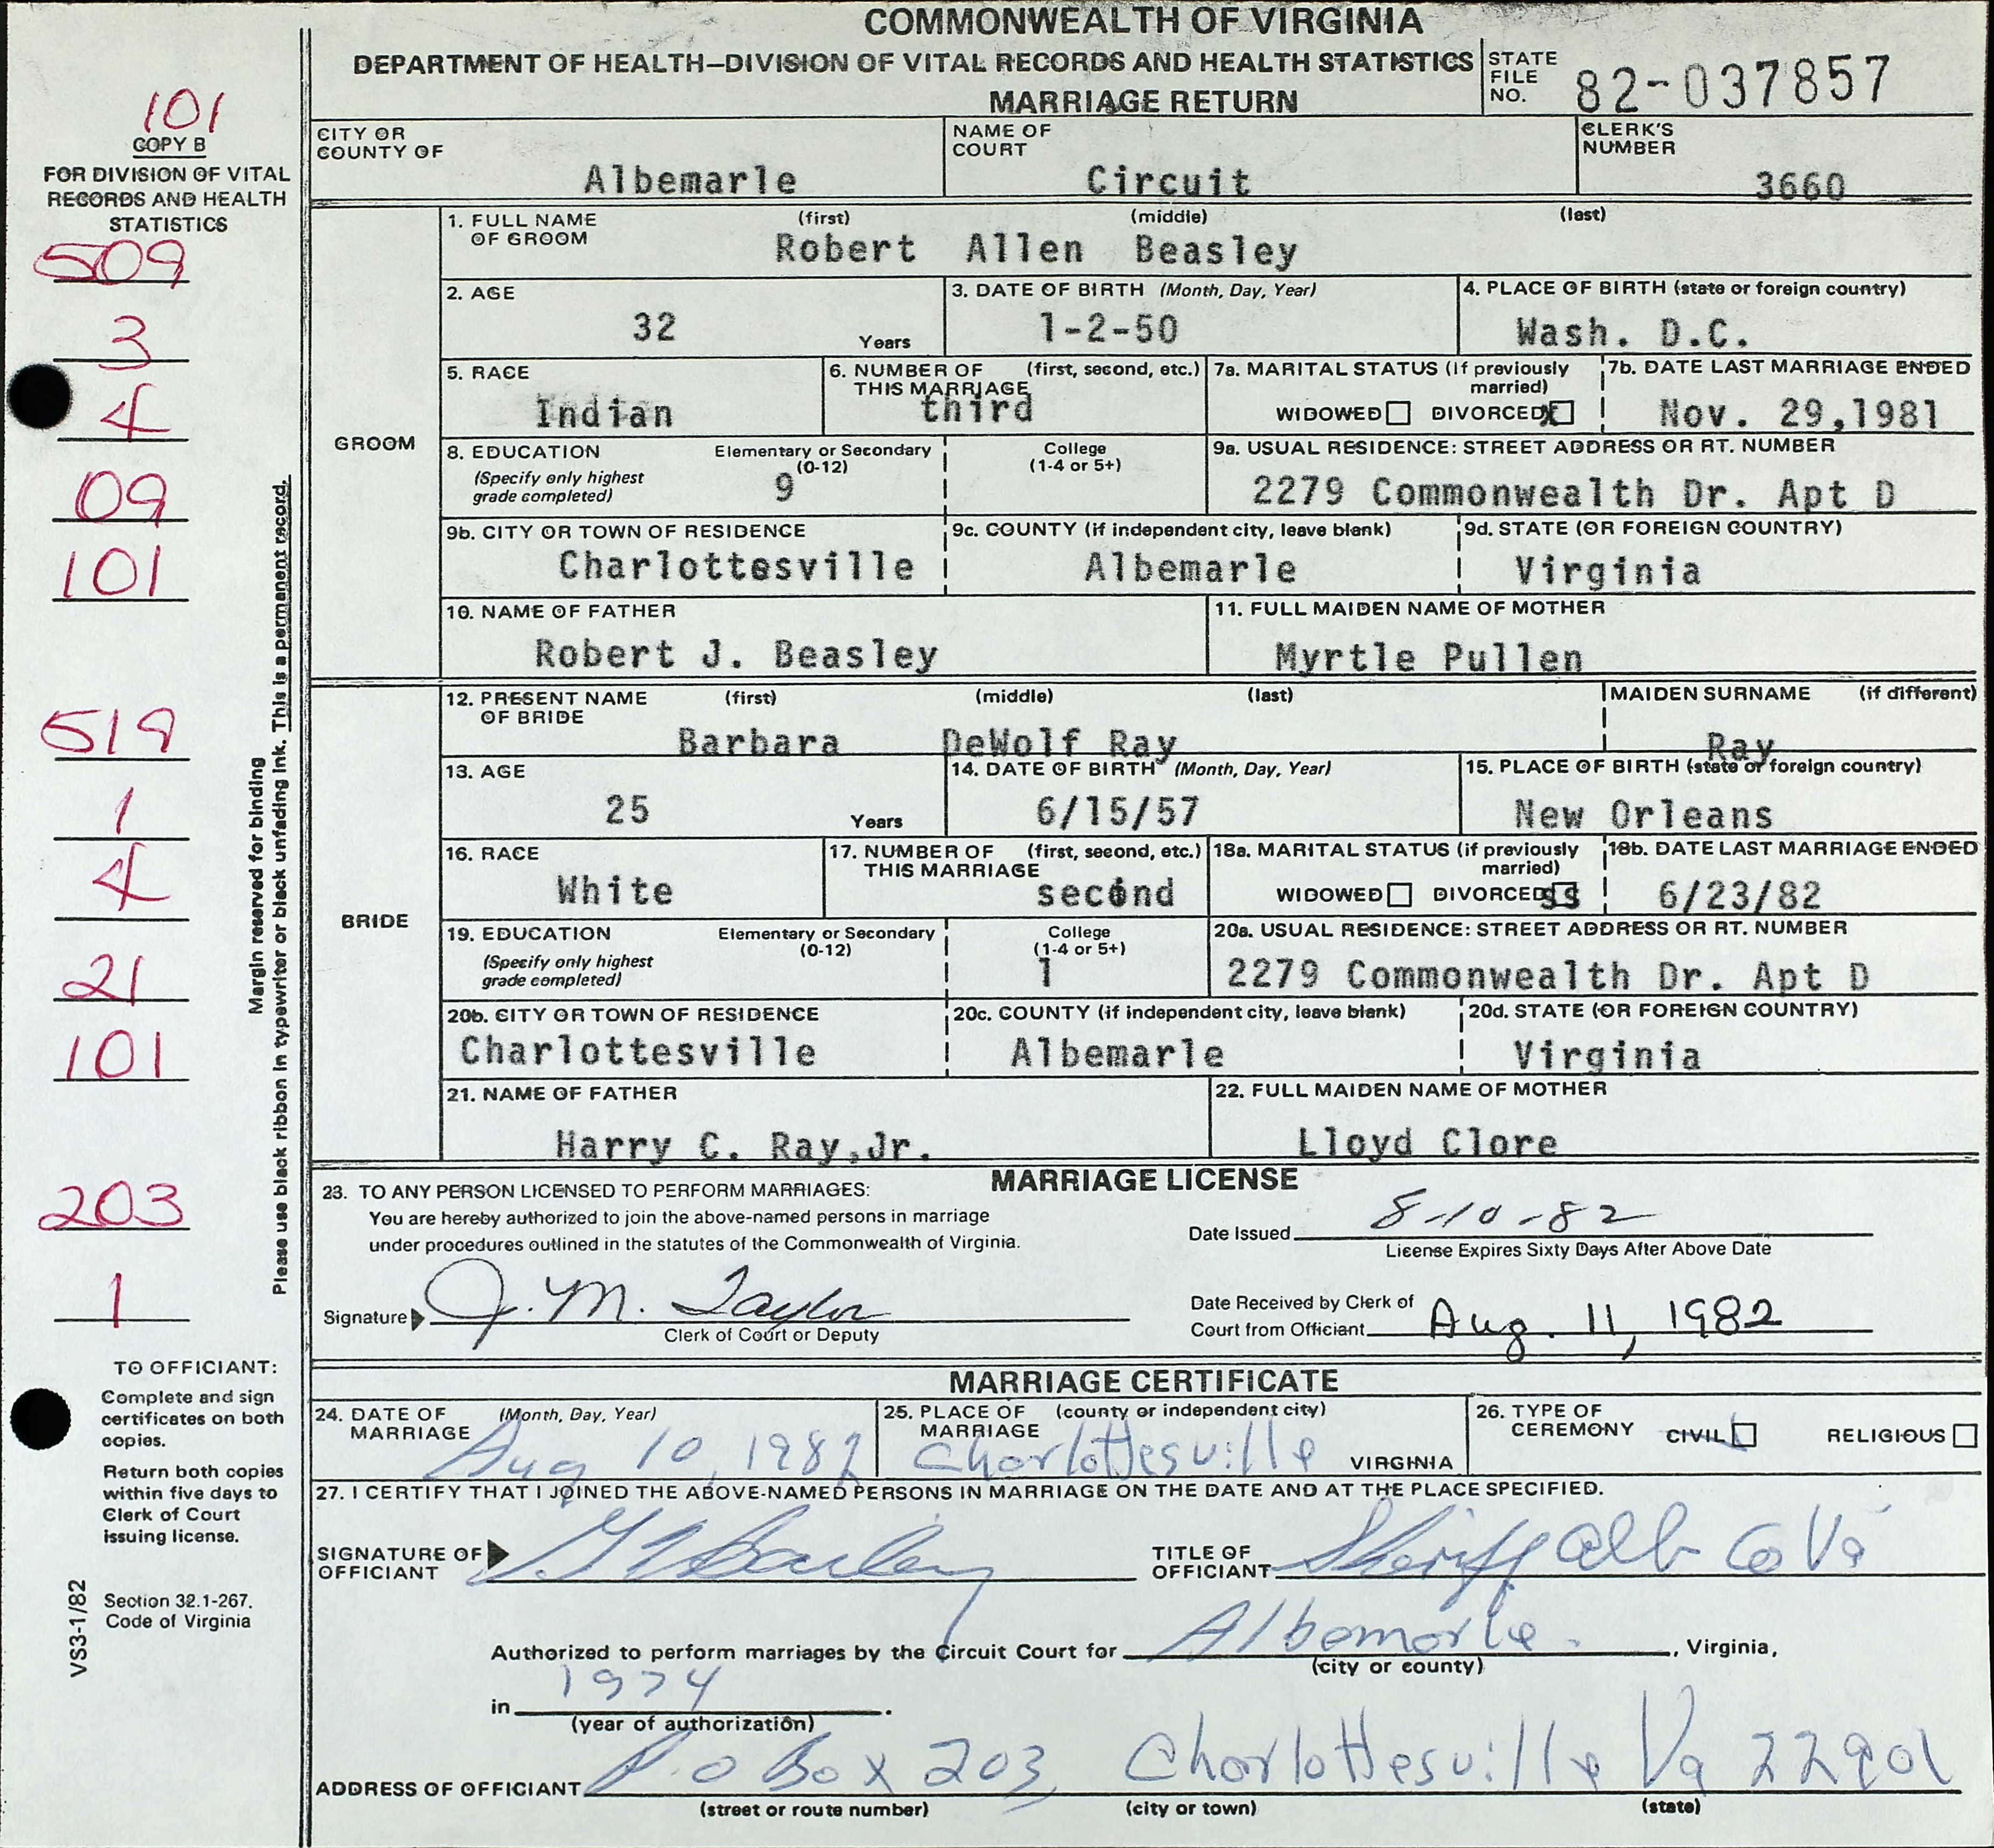 COMMONWEALTH OF VIRGINIA
DEPARTMENT OF HEALTH—DIVISION OF VITAL RECORDS AND HEALTH STATISTICS
MARRIAGE RETURN
STATE FILE NO. 82-037857
101
COPY B
FOR DIVISION OF VITAL
RECORDS AND HEALTH
STATISTICS
509
3
4
09
101
519
1
4
21
101
203
1
Margin reserved for binding
Please use black ribbon in typewriter or black unfading ink. This is a permanent record.
TO OFFICIANT:
Complete and sign
certificates on both
copies.
Return both copies
within five days to
Clerk of Court
issuing license.
Section 32.1-267,
Code of Virginia
VS3-1/82
CITY OR COUNTY OF Albemarle
NAME OF COURT Circuit
CLERK'S NUMBER 3660
GROOM
1. FULL NAME OF GROOM (first) (middle) (last)
Robert Allen Beasley
2. AGE 32 Years
3. DATE OF BIRTH (Month, Day, Year) 1-2-50
4. PLACE OF BIRTH (state or foreign country) Wash. D.C.
5. RACE Indian
6. NUMBER OF THIS MARRIAGE (first, second, etc.) third
7a. MARITAL STATUS (If previously married) WIDOWED DIVORCED X
7b. DATE LAST MARRIAGE ENDED Nov. 29,1981
8. EDUCATION (Specify only highest grade completed) Elementary or Secondary (0-12) 9 College (1-4 or 5+)
9a. USUAL RESIDENCE: STREET ADDRESS OR RT. NUMBER 2279 Commonwealth Dr. Apt D
9b. CITY OR TOWN OF RESIDENCE Charlottesville
9c. COUNTY (if independent city, leave blank) Albemarle
9d. STATE (OR FOREIGN COUNTRY) Virginia
10. NAME OF FATHER Robert J. Beasley
11. FULL MAIDEN NAME OF MOTHER Myrtle Pullen
BRIDE
12. PRESENT NAME OF BRIDE (first) (middle) (last)
Barbara DeWolf Ray
MAIDEN SURNAME (if different) Ray
13. AGE 25 Years
14. DATE OF BIRTH (Month, Day, Year) 6/15/57
15. PLACE OF BIRTH (state or foreign country) New Orleans
16. RACE White
17. NUMBER OF THIS MARRIAGE (first, second, etc.) second
18a. MARITAL STATUS (if previously married) WIDOWED DIVORCED ss
18b. DATE LAST MARRIAGE ENDED 6/23/82
19. EDUCATION (Specify only highest grade completed) Elementary or Secondary (0-12) College (1-4 or 5+) 1
20a. USUAL RESIDENCE: STREET ADDRESS OR RT. NUMBER 2279 Commonwealth Dr. Apt D
20b. CITY OR TOWN OF RESIDENCE Charlottesville
20c. COUNTY (if independent city, leave blank) Albemarle
20d. STATE (OR FOREIGN COUNTRY) Virginia
21. NAME OF FATHER Harry C. Ray,Jr.
22. FULL MAIDEN NAME OF MOTHER Lloyd Clore
MARRIAGE LICENSE
23. TO ANY PERSON LICENSED TO PERFORM MARRIAGES:
You are hereby authorized to join the above-named persons in marriage
under procedures outlined in the statutes of the Commonwealth of Virginia.
Date Issued 8-10-82
License Expires Sixty Days After Above Date
Signature J. M. Taylor
Clerk of Court or Deputy
Date Received by Clerk of
Court from Officiant Aug. 11, 1982
MARRIAGE CERTIFICATE
24. DATE OF MARRIAGE (Month, Day, Year) Aug 10, 1982
25. PLACE OF MARRIAGE (county or independent city) Charlottesville VIRGINIA
26. TYPE OF CEREMONY CIVIL RELIGIOUS
27. I CERTIFY THAT I JOINED THE ABOVE-NAMED PERSONS IN MARRIAGE ON THE DATE AND AT THE PLACE SPECIFIED.
SIGNATURE OF OFFICIANT
TITLE OF OFFICIANT Sheriff Alb Co Va
Authorized to perform marriages by the Circuit Court for Albemarle, Virginia,
(city or county)
in 1974.
(year of authorization)
ADDRESS OF OFFICIANT P.O Box 203 Charlottesville Va 22901
(street or route number) (city or town) (state)